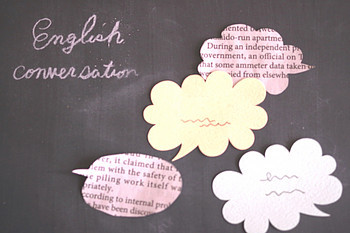 English
conversation
mented between
ido-run apartme
During an independent p
overnment, an official on
that some ammeter data taken
ied from elsewh
er, it claimed that
em with the safety of
e piling work itself wa
priately.
ccording to internal pro
have been disco